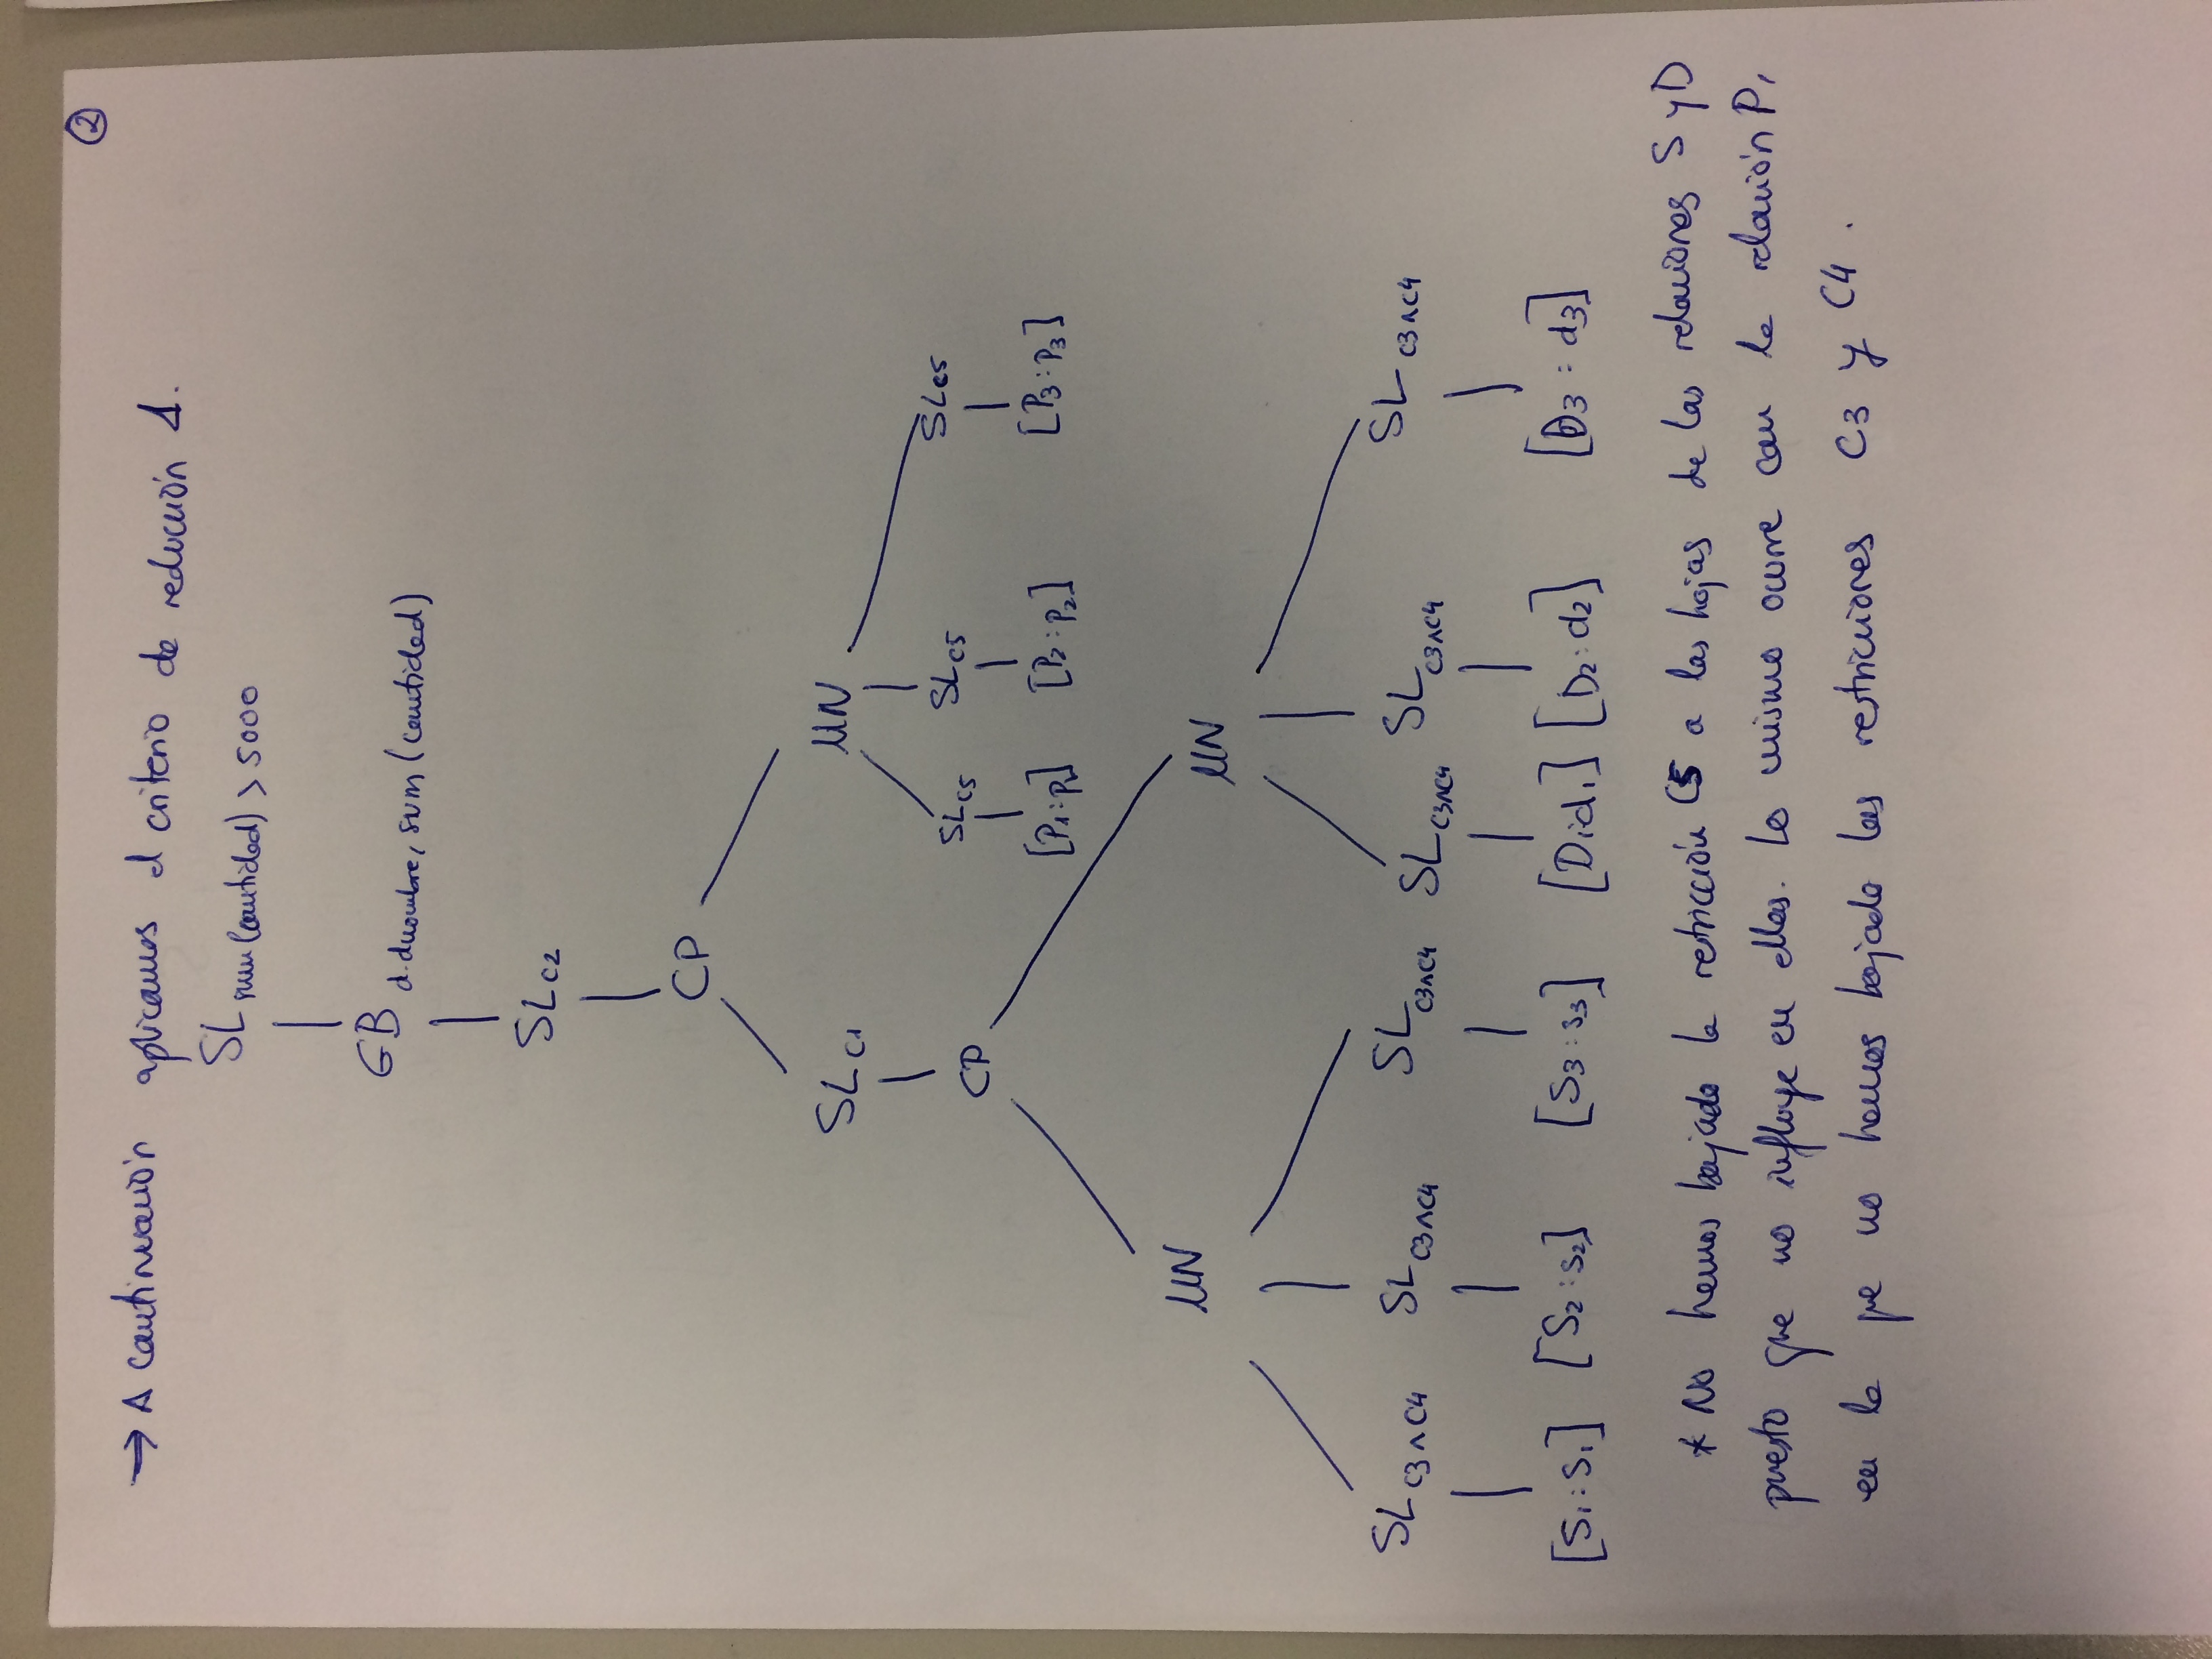 ②
→ A continuación aplicamos el criterio de reducción 1.
SL sum(cantidad) > 5000
GB d.dnombre, sum (cantidad)
SL C2
CP
SL C1 UN
SL C5 SL C5 SL C5
CP
[P1:p1] [P2:p2] [P3:p3]
UN UN
SL C3∧C4 SL C3∧C4 SL C3∧C4 SL C3∧C4 SL C3∧C4 SL C3∧C4
[S1:s1] [S2:s2] [S3:s3] [D1:d1] [D2:d2] [D3:d3]
* No hemos bajado la restricción C5 a las hojas de las relaciones S y D
puesto que no influye en ellas. Lo mismo ocurre con la relación P,
en la que no hemos bajado las restricciones C3 y C4.